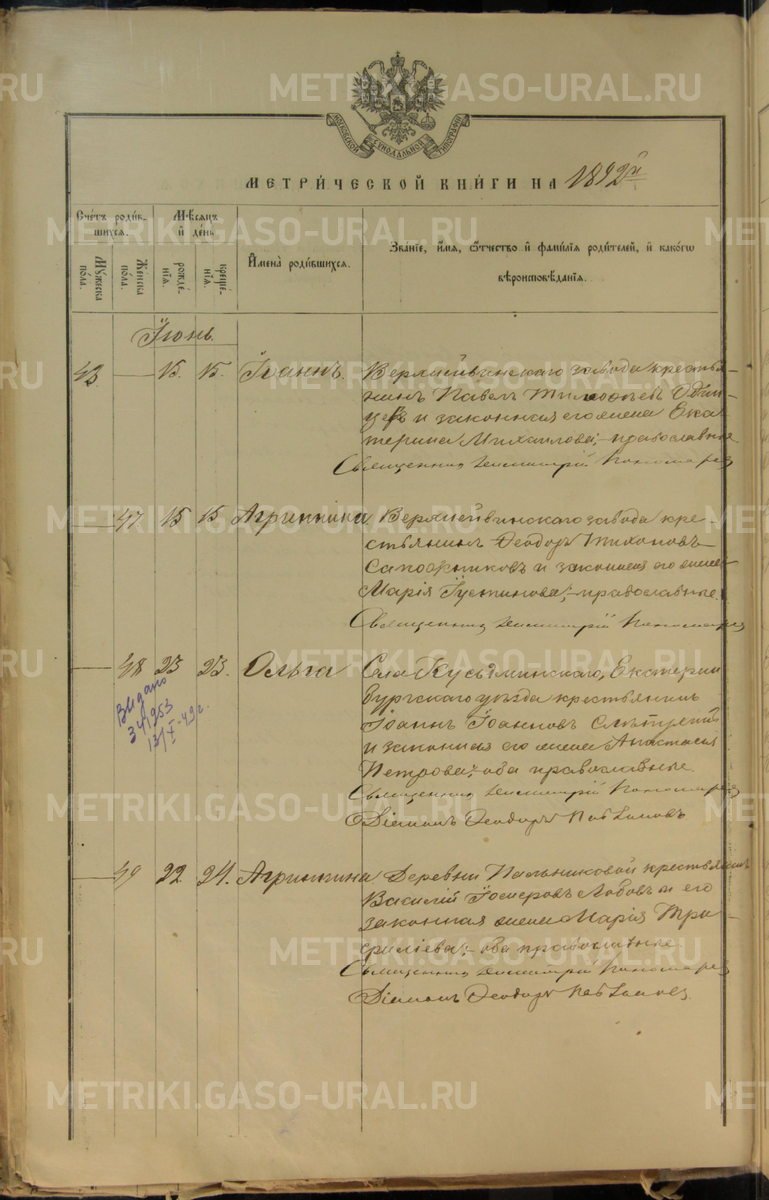 МОСКОВСКОЙ СѴНОДАЛЬНОЙ ТИПОГРАФІИ
МЕТРИ́ЧЕСКОЙ КНИ́ГИ НА 1892й
Сче́тъ роди́вшихся.
Мꙋжеска по́ла.
Же́нска по́ла.
Мѣ́сяцъ и҆ де́нь
рожде́нїѧ.
креще́нїѧ.
И҆мена̀ роди́вшихся.
Зва́нїе, и҆́мѧ, ѻ҆́тчество и҆ фами́лїѧ роди́телей, и҆ како́гѡ вѣроисповѣ́данїѧ.
Іюнь.
43 — 15. 15. Іоаннъ.
Верхнейвинскаго завода крестья-
нинъ Павелъ Тимофѣев
и законная его жена Ека-
терина Михаилова; православные
Священникъ Димитрій Пономарев
— 47 15 15 Агриппина
Верхнейвинскаго завода кре-
стьянинъ Ѳеодоръ Тихоновъ
Сапожниковъ и законная его жена
Марія Іустинова; православные.
Священникъ Димитрій Пономарев
— 48 23 23. Ольга
Села Кузьминскаго, Екатерин
бургскаго уѣзда крестьянинъ
Іоаннъ Іоанновъ
и законная его жена Анастасія
Петрова; оба православные.
Священникъ Димитрій Пономарев
Діаконъ Ѳеодоръ
Выдано
341253
13/X-49г.
— 49 22 24. Агриппина
Деревни Пальниковой крестьянинъ
Василій Лобовъ и его
законная жена Марія Три-
филіева; оба православные.
Священникъ Димитрій Пономарев
Діаконъ Ѳеодоръ
METRIKI.GASO-URAL.RU